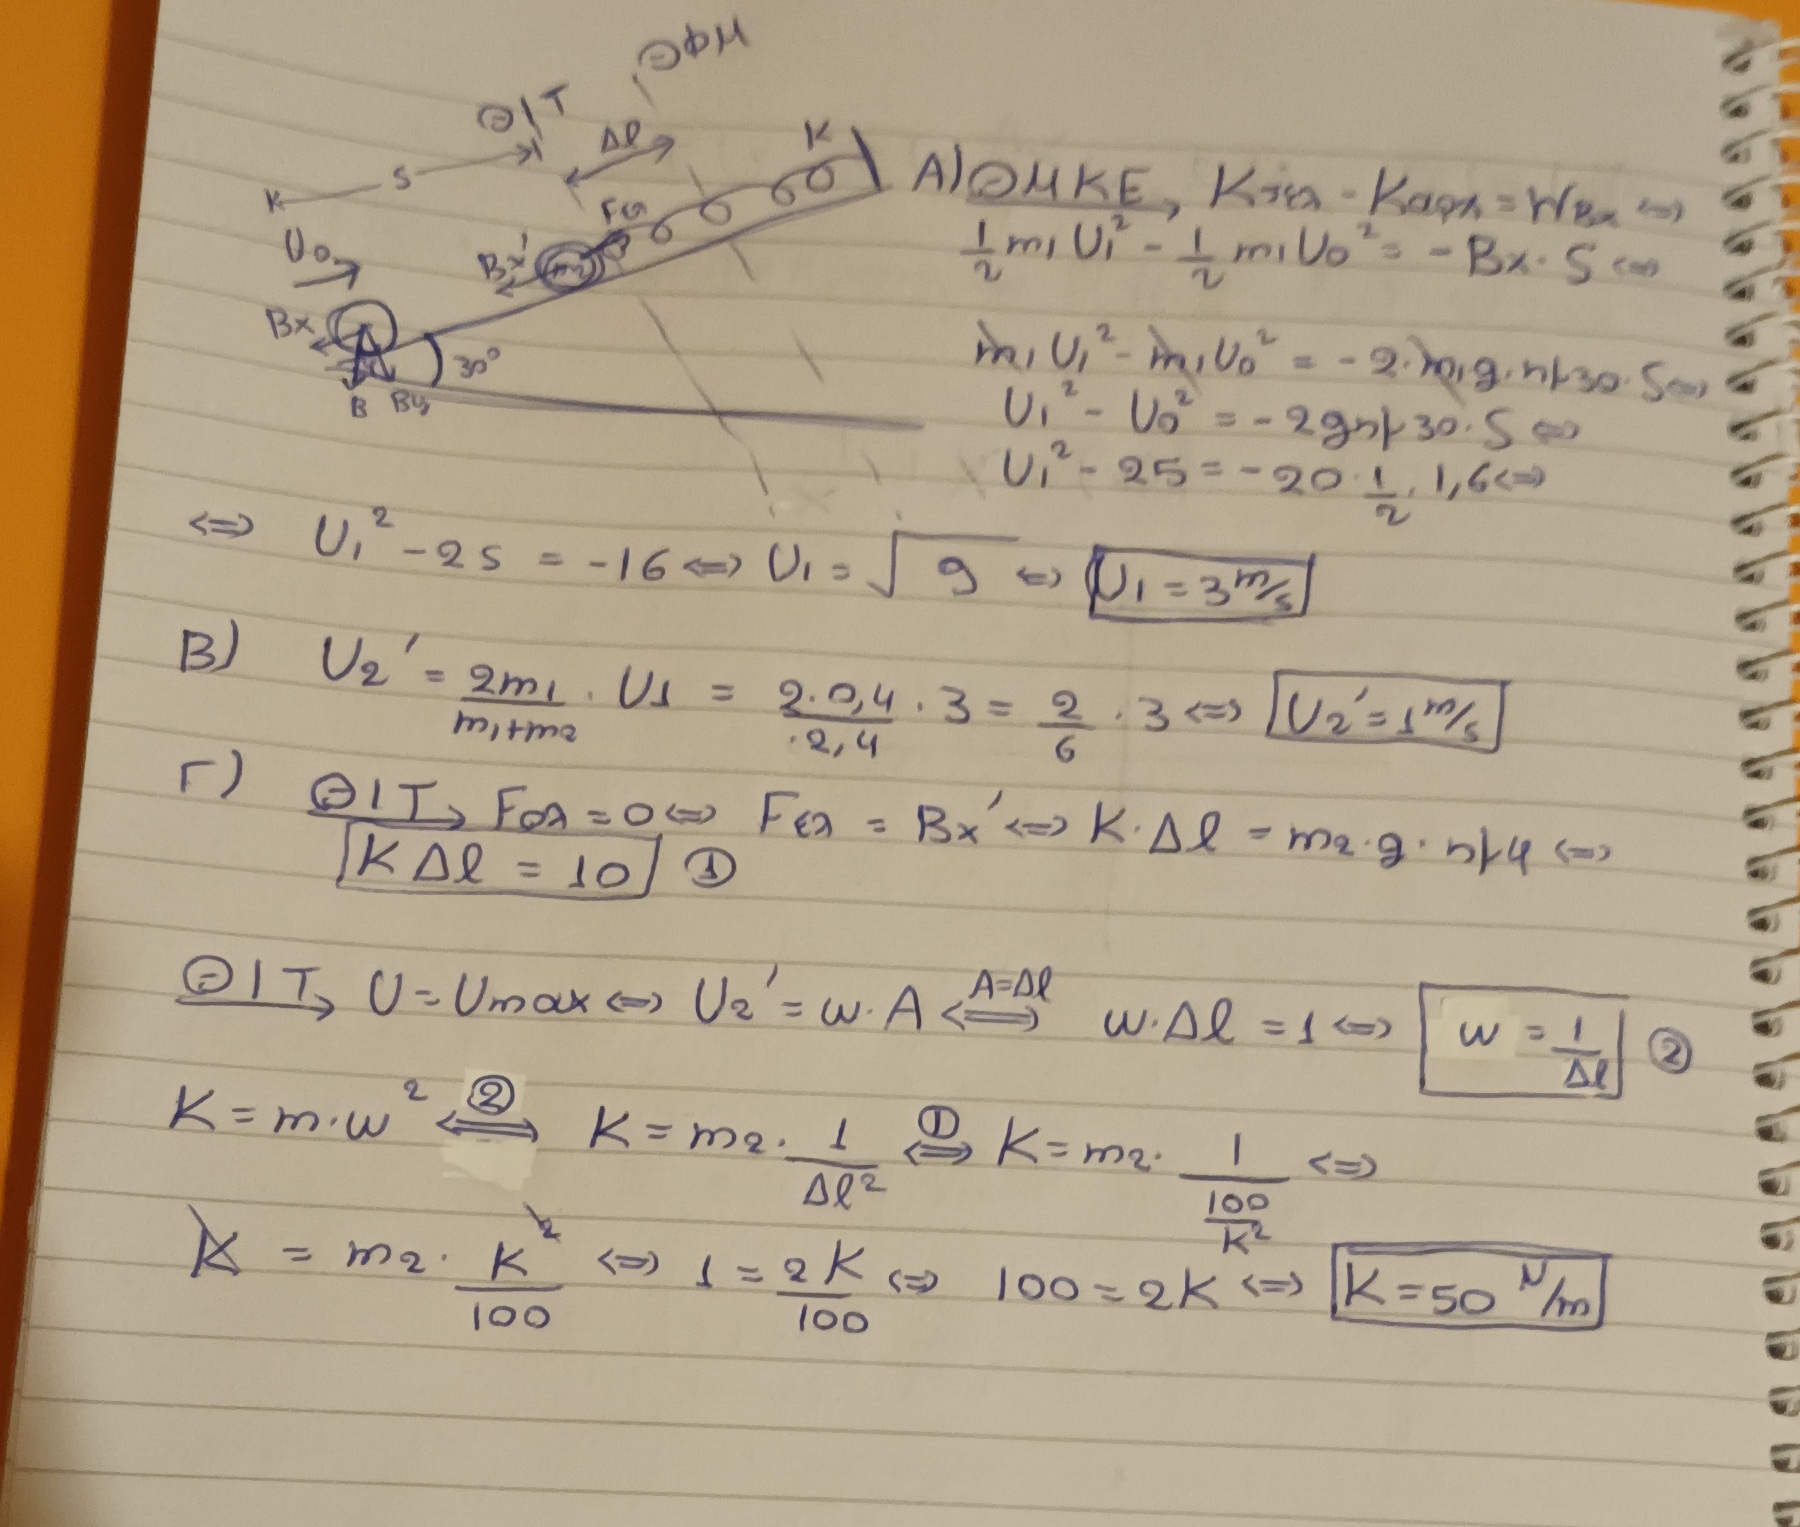 ΘΦΜ
ΘΙΤ
Δl
K
S
Fελ
U0
Bx'
m2
Bx
30°
B By
A) ΘΜΚΕ, Kτελ - Kαρχ = WBx <=>
1/2 m1 U1² - 1/2 m1 U0² = - Bx · S <=>
m1 U1² - m1 U0² = - 2 · m1 g · ημ30 · S <=>
U1² - U0² = - 2gημ30 · S <=>
U1² - 25 = - 20 · 1/2 · 1,6 <=>
<=> U1² - 25 = -16 <=> U1 = √9 <=> U1 = 3 m/s
B) U2' = 2m1/(m1+m2) · U1 = 2·0,4/2,4 · 3 = 2/6 · 3 <=> U2' = 1 m/s
Γ) ΘΙΤ, Fολ = 0 <=> Fελ = Bx' <=> K · Δl = m2 · g · ημφ <=>
K Δl = 10 ①
ΘΙΤ, U = Umax <=> U2' = ω · A <=> (A=Δl) ω · Δl = 1 <=> ω = 1/Δl ②
K = m · ω² <=> ② K = m2 · 1/Δl² <=> ① K = m2 · 1/(100/K²) <=>
K = m2 · K²/100 <=> 1 = 2K/100 <=> 100 = 2K <=> K = 50 N/m